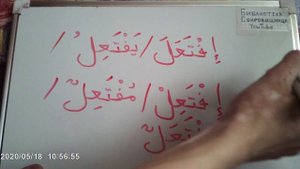 Библиотека
Сокровищница
YouTube
إِفْتَعَلَ / يَفْتَعِلُ /
إِفْتَعِلْ / مُفْتَعِلٌ /
2020/05/18 10:56:55